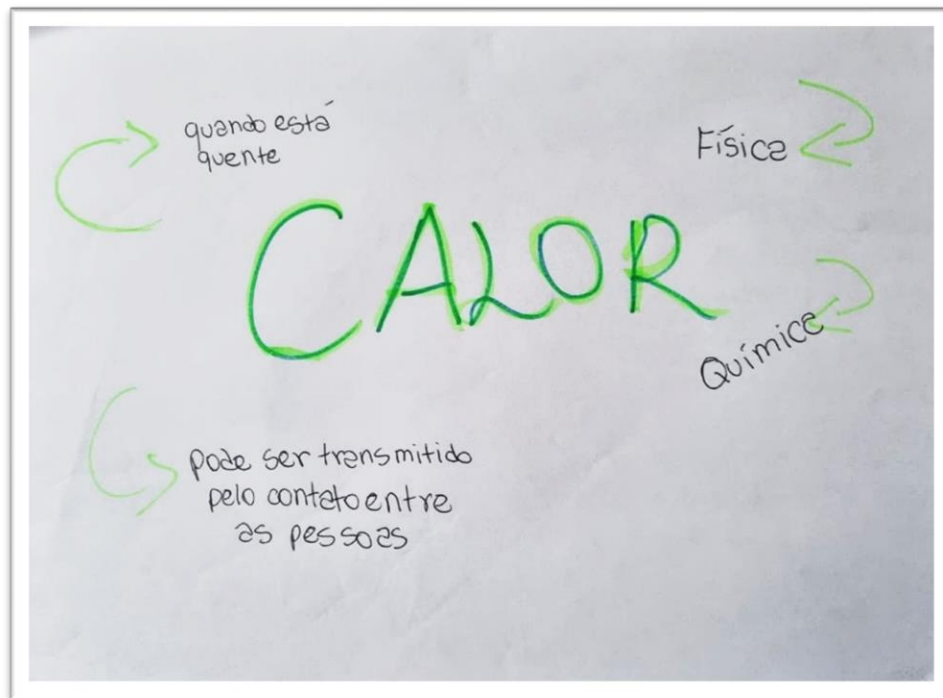 quando está
quente
Física
CALOR
Química
pode ser transmitido
pelo contato entre
as pessoas